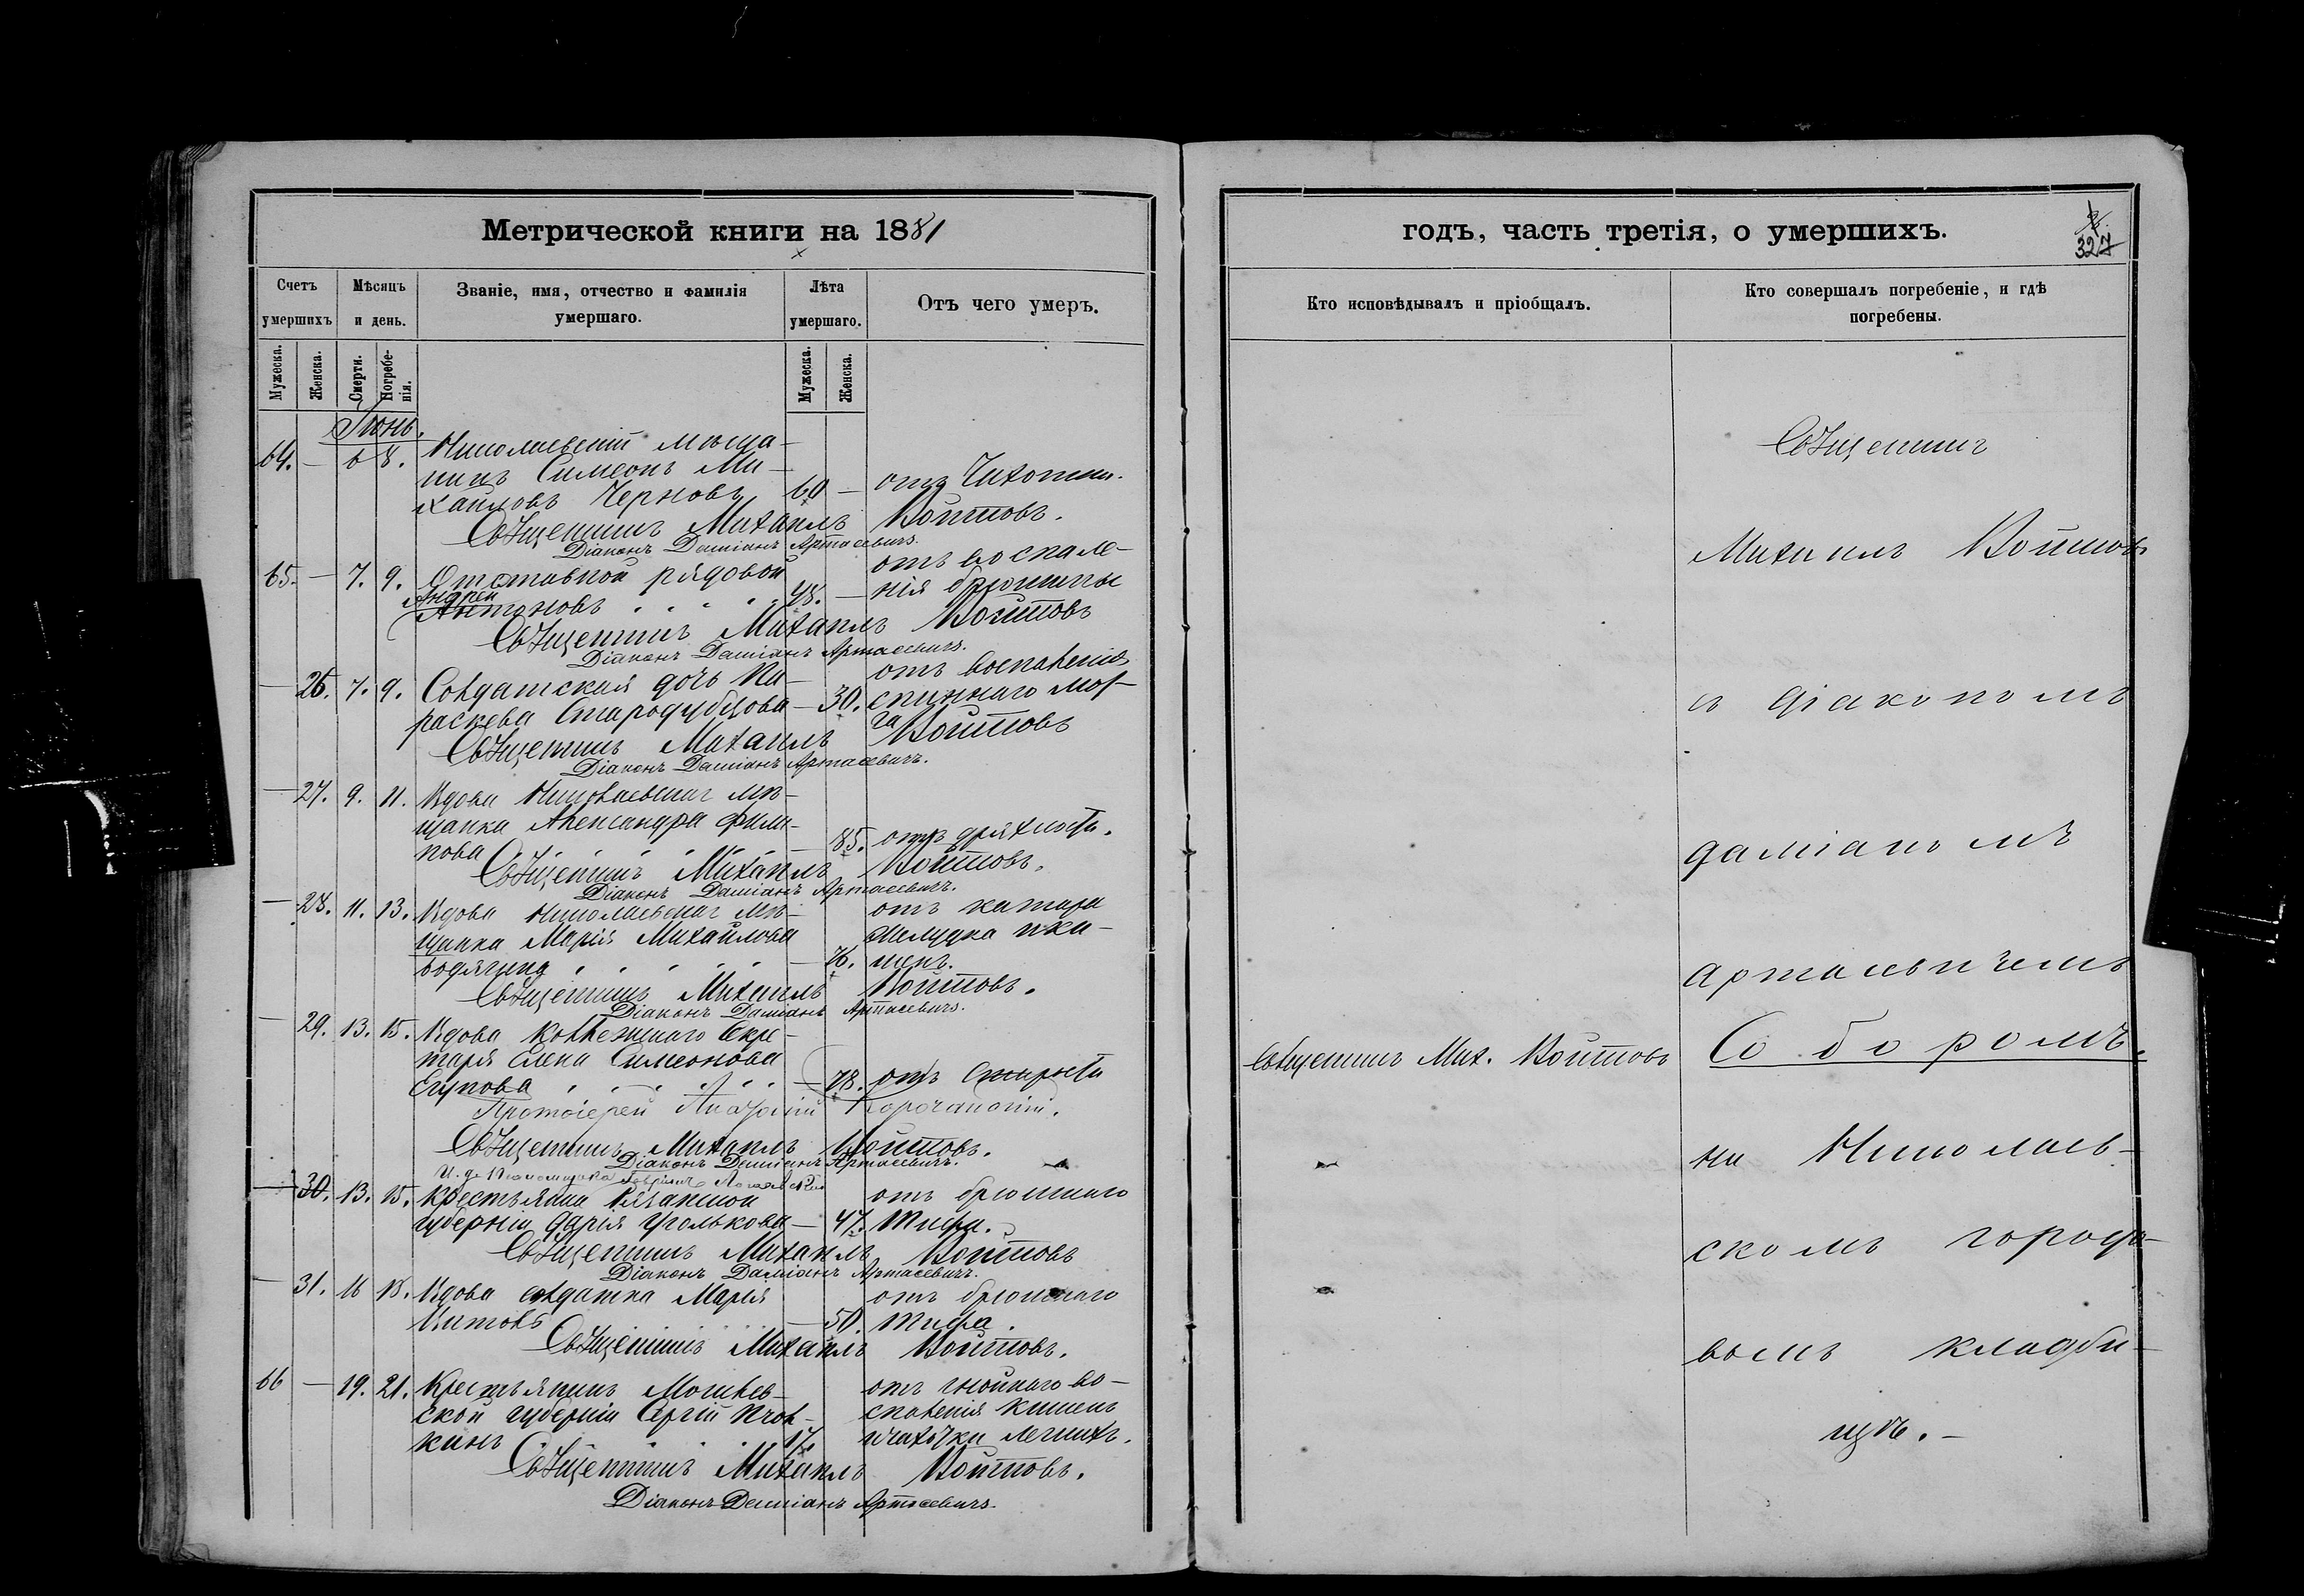 Метрической книги на 1881
Счетъ умершихъ
Мѣсяцъ и день.
Званіе, имя, отчество и фамилія умершаго.
Лѣта умершаго.
Отъ чего умер.
Мужеска.
Женска.
Смерти.
Погребенія.
Мужеска.
Женска.
Іюнь.
64. — 6 8. Николаевскій мѣща-
нинъ Симеонъ Ми-
хайловъ Черновъ 60 — отъ Чахотки.
Священникъ Михаилъ Войтовъ.
Діаконъ Даміанъ Артасевичъ.
65. — 7. 9. Отставной рядовой отъ воспале-
Андрей
Антоновъ . . . . . 48. — нія брюшины
Священникъ Михаилъ Войтовъ
Діаконъ Даміанъ Артасевичъ.
— 26. 7. 9. Солдатская дочь Па- отъ воспаленія
раскева Стародубцова — 30. спиннаго моз-
га
Священникъ Михаилъ Войтовъ
Діаконъ Даміанъ Артасевичъ.
— 27. 9. 11. Вдова Николаевская мѣ-
щанка Александра Фили-
пова — 85. отъ дряхлости.
Священникъ Михаилъ Войтовъ.
Діаконъ Даміанъ Артасевичъ.
— 28. 11. 13. Вдова Николаевская мѣ- отъ катара
щанка Марія Михайлова желудка и ки-
Бодягина . . . . . — 76. шекъ.
Священникъ Михаилъ Войтовъ.
Діаконъ Даміанъ Артасевичъ.
— 29. 13. 15. Вдова Коллежскаго Секре-
таря Елена Симеонова
Егупова . . . . . — 78. отъ Старости
Протоіерей
Священникъ Михаилъ Войтовъ.
Діаконъ Даміанъ Артасевичъ.
И. д. Псаломщика
— 30. 13. 15. Крестьянка Рязанской отъ брюшнаго
губерніи Дарія Уголькова — 47. Тифа.
Священникъ Михаилъ Войтовъ
Діаконъ Даміанъ Артасевичъ.
— 31. 16 18. Вдова солдатка Марія отъ брюшнаго
— 50. тифа.
Священникъ Михаилъ Войтовъ.
66 — 19. 21. Крестьянинъ Могилев- отъ гнойнаго во-
ской губерніи Сергій Пчол- спаленія кишекъ
кинъ . . . . 17. и чахотки легкихъ.
Священникъ Михаилъ Войтовъ.
Діаконъ Даміанъ Артасевичъ.
годъ, часть третія, о умершихъ.
327
Кто исповѣдывалъ и пріобщалъ.
Кто совершалъ погребеніе, и гдѣ погребены.
Священникъ
Михаилъ Войтовъ
съ діакономъ
Даміаномъ
Артасевичемъ
Священникъ Мих. Войтовъ
Соборомъ.
на Николаев-
скомъ городо-
вомъ кладби-
щѣ. —